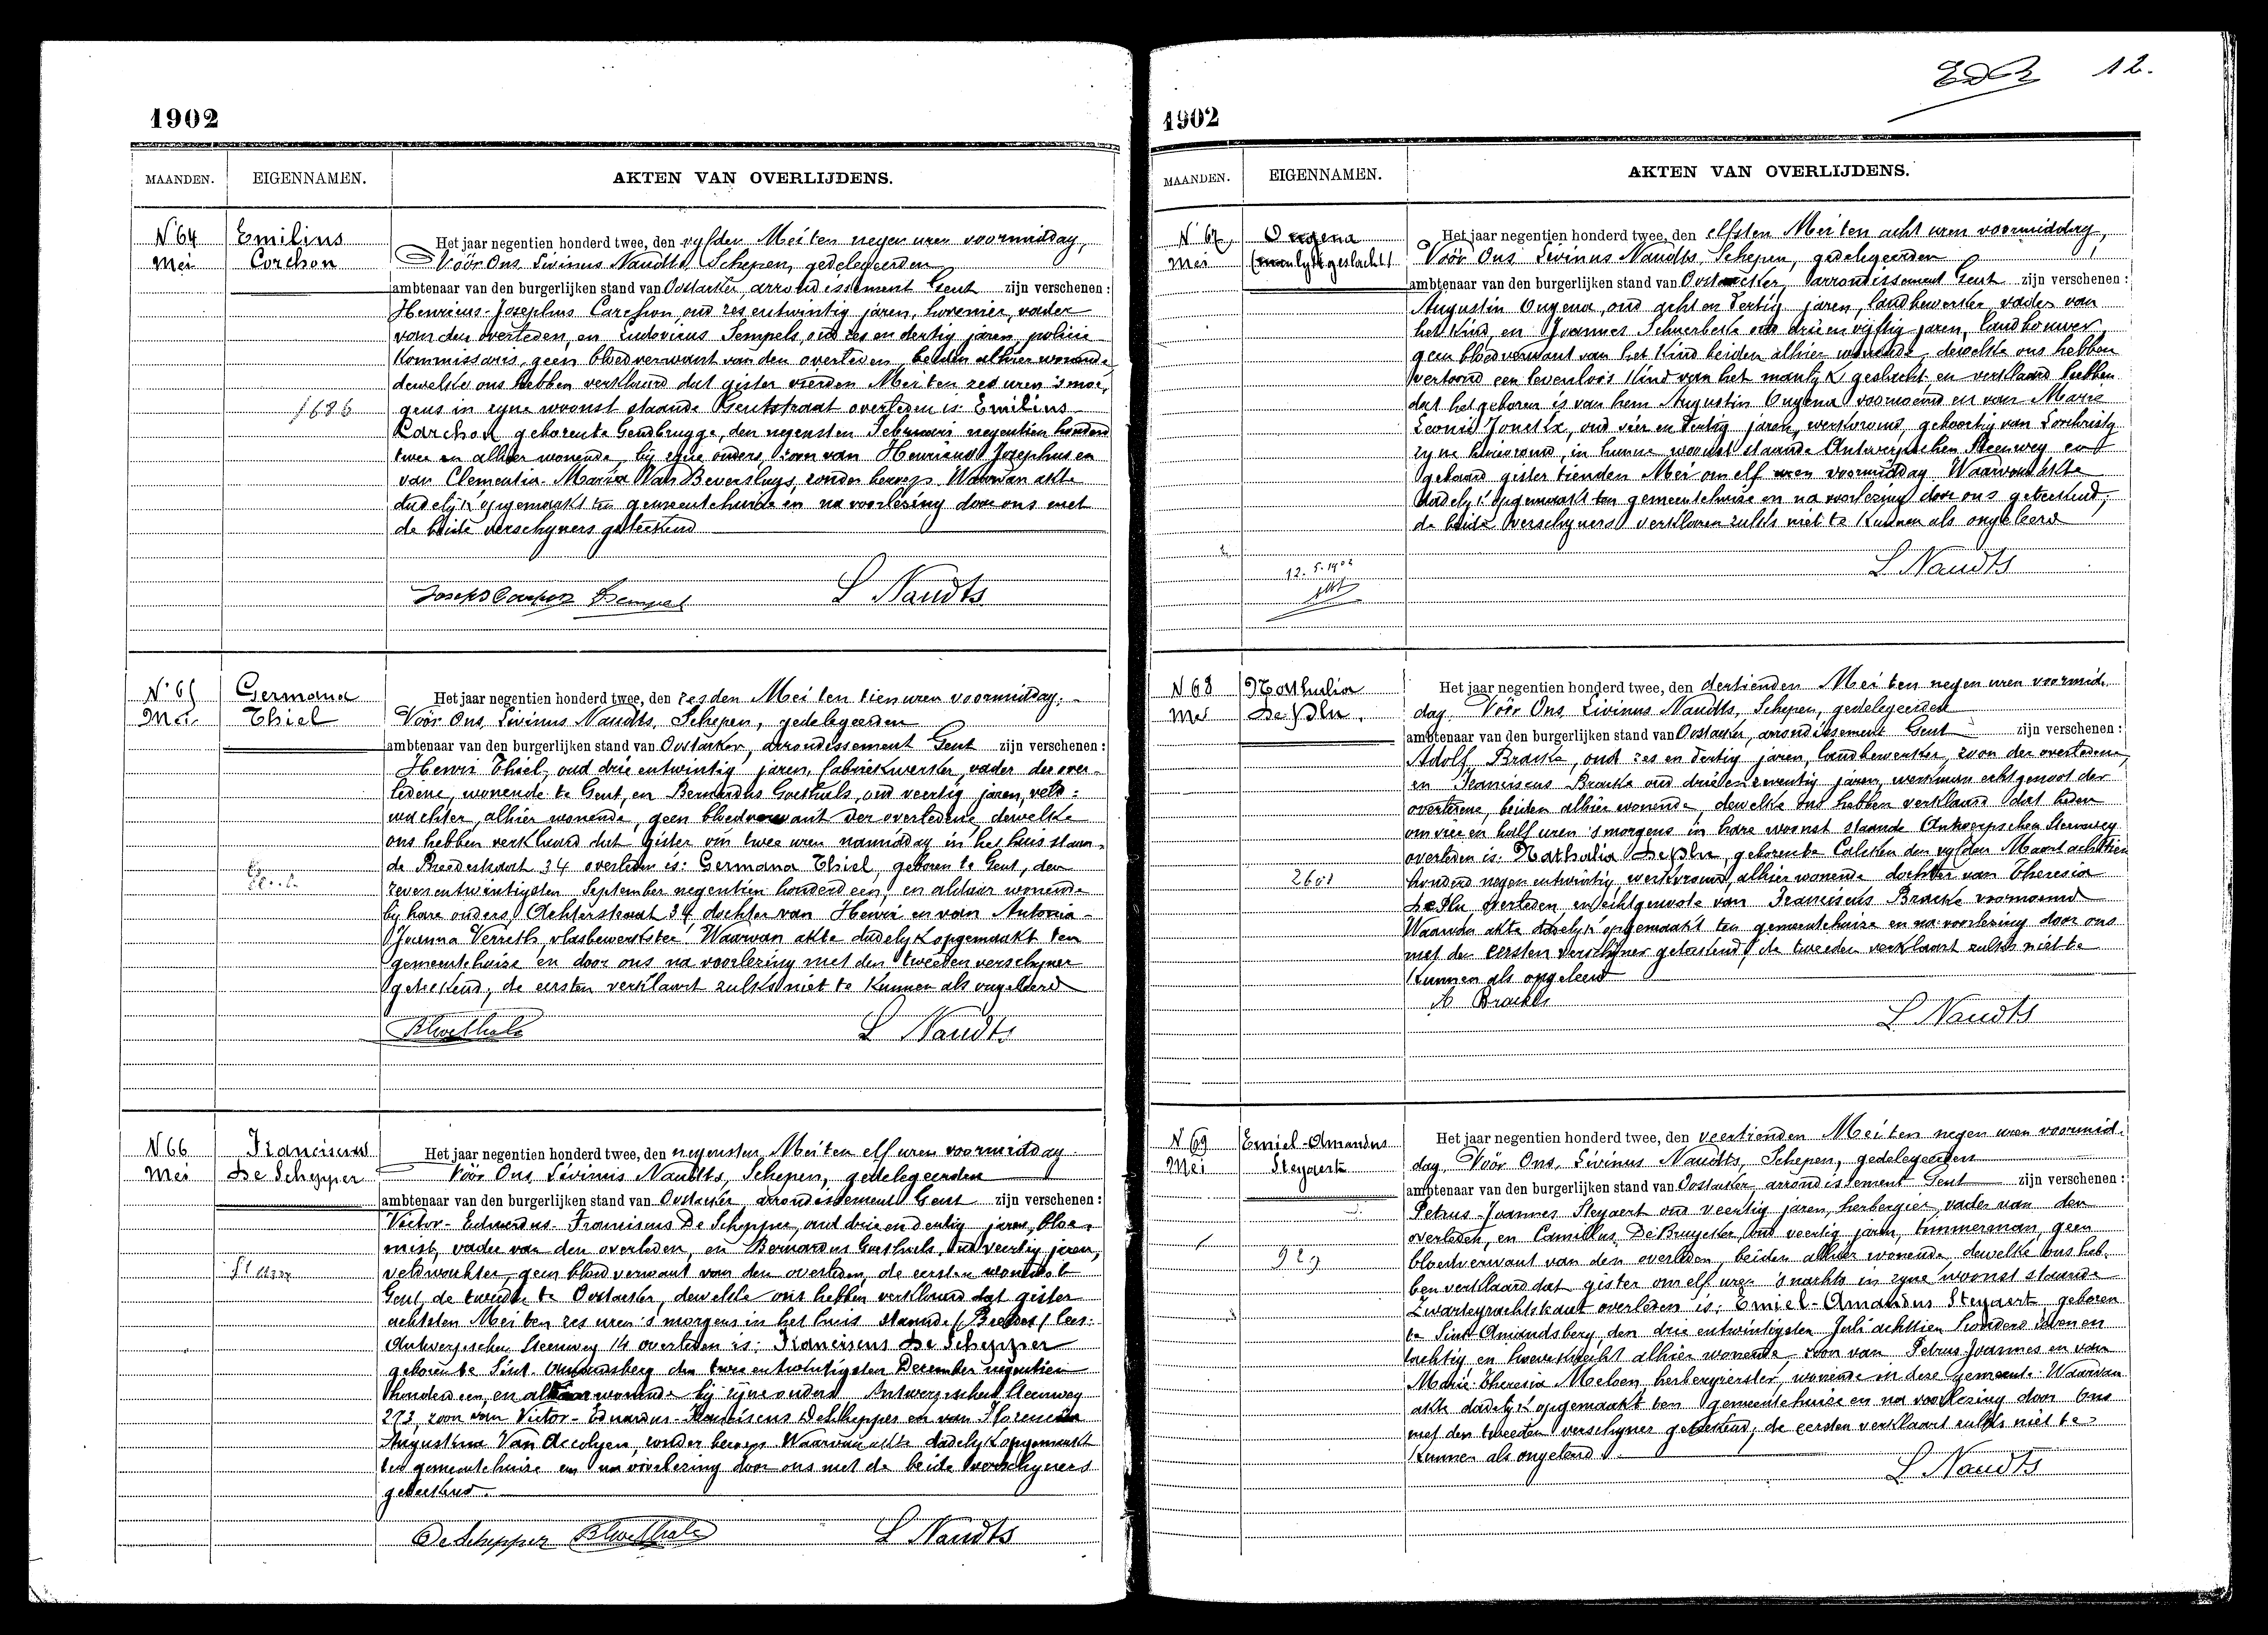 1902
MAANDEN. EIGENNAMEN. AKTEN VAN OVERLIJDENS.
N 64 Mei
Emilius Corchon
Het jaar negentien honderd twee, den vyfden Mei ten negen uren voormiddag,
Vóór Ons Livinus Naudts, Schepen, gedelegeerden
ambtenaar van den burgerlijken stand van Oostacker, arrondissement Gent zijn verschenen :
Henricus-Josephus Carchon oud zes en twintig jaren, hovenier, vader
van den overleden, en Ludovicus Tempels, oud zes en dertig jaren, policie
Kommissaris, geen bloedverwant van den overleden, beiden alhier wonende
dewelke ons hebben verklaard dat gister vierden Mei ten zes uren 's mor,
1686
gens in zyne woonst staande Gentstraat overleden is: Emilius
Carchon geboren te Gendbrugge, den negensten Februari negentien honderd
twee en alhier wonende bij zyne ouders, zoon van Henricus Josephus en
van Clementia-Maria Van Beversluys, zonder beroep. Waarvan akte
dadelyk opgemaakt ten gemeentehuize en na voorlezing door ons met
de beide verschyners geteekend
Tempels L Naudts
N 65 Mei
Germana Thiel
Het jaar negentien honderd twee, den zesden Mei ten tien uren voormiddag. -
Vóór Ons, Livinus Naudts, Schepen, gedelegeerden
ambtenaar van den burgerlijken stand van Oostacker, arrondissement Gent zijn verschenen :
Henri Thiel, oud drie en twintig jaren, fabriekwerker, vader der over-
ledene, wonende te Gent, en Bernardus Goethals, oud veertig jaren, veld=
wachter, alhier wonende, geen bloedverwant der overledene, dewelke
ons hebben verklaard dat gister om twee uren namiddag in het huis staan-
de Breedestraat 34 overleden is: Germana Thiel, geboren te Gent, den
zeven en twintigsten September negentien honderd een, en aldaar wonende
bij hare ouders, Achterstraat 34, dochter van Henri en van Antonia-
Joanna Verreth, vlasbewerkster. Waarvan akte dadelyk opgemaakt ten
gemeentehuize en door ons na voorlezing met den tweeden verschyner
geteekend; de eersten verklaart zulks niet te kunnen als ongeleerd
BGoethals L Naudts
N 66 Mei
Franciscus De Schepper
Het jaar negentien honderd twee, den negensten Mei ten elf uren voormiddag.
Vóór Ons Livinus Naudts, Schepen, gedelegeerden
ambtenaar van den burgerlijken stand van Oostacker, arrondissement Gent zijn verschenen :
Victor-Eduardus-Franciscus De Schepper, oud drie en dertig jaren, bloe-
mist, vader van den overleden, en Bernardus Goethals, oud veertig jaren,
veldwachter, geen bloedverwant van den overleden, de eersten wonende te
Gent, de tweede te Oostacker, dewelke ons hebben verklaard dat gister
achtsten Mei ten zes uren 's morgens in het huis staande (Breedes) lees:
Antwerpschen steenweg 14 overleden is: Franciscus De Schepper
geboren te Sint Amandsberg den twee en twintigsten December negentien
honderd een, en aldaar wonende bij zijne ouders Antwerpschen Steenweg
273, zoon van Victor-Eduardus-Franciscus De Schepper en van Florencia
Augustina Van Accolyen, zonder beroep. Waarvan akte dadelyk opgemaakt
ten gemeentehuize en na voorlezing door ons met de beide verschyners
geteekend.
De Schepper BGoethals L Naudts
12.
1902
MAANDEN. EIGENNAMEN. AKTEN VAN OVERLIJDENS.
N 67 Mei
Ongena
(manlyk geslacht)
Het jaar negentien honderd twee, den elfsten Mei ten acht uren voormiddag,
Vóór Ons Livinus Naudts, Schepen, gedelegeerden
ambtenaar van den burgerlijken stand van Oostacker, arrondissement Gent zijn verschenen :
Augustin Ongena, oud acht en dertig jaren, landbewerker, vader van
het kind, en Joannes Schuerbeke oud drie en vijftig jaren, landbouwer,
geen bloedverwant van het kind beiden alhier wonende, dewelke ons hebben
vertoond een levenloos kind van het manlyk geslacht, en verklaard hebben
dat het geboren is van hem Augustin Ongena voornoemd en van Marie
Leonie, oud vier en dertig jaren, werkvrouw, geboortig van Lochristy
zyne huisvrouw, in hunne woonst staande Antwerpschen Steenweg en
gebaard gister tienden Mei om elf uren voormiddag. Waarvan akte
dadelyk opgemaakt ten gemeentehuize en na voorlezing door ons geteekend;
de beide verschyners verklaren zulks niet te kunnen als ongeleerd
12. 5. 1902
L Naudts
N 68 Mei
Nathalia De Pln
Het jaar negentien honderd twee, den dertienden Mei ten negen uren voormid-
dag. Vóór Ons Livinus Naudts, Schepen, gedelegeerden
ambtenaar van den burgerlijken stand van Oostacker, arrondissement Gent zijn verschenen :
Adolf Bracke, oud zes en dertig jaren, landbewerker, zoon der overledene,
en Franciscus Bracke oud drie en zeventig jaren, werkman echtgenoot der
overledene, beiden alhier wonende, dewelke ons hebben verklaard dat heden
om vier en half uren 's morgens in hare woonst staande Antwerpschen Steenweg
overleden is: Nathalia geboren te Calcken den vyfden Maart achttien
2601
honderd negen en twintig, werkvrouw, alhier wonende dochter van Theresia
overleden en echtgenoote van Franciscus Bracke voornoemd
Waarvan akte dadelyk opgemaakt ten gemeentehuize en na voorlezing door ons
met den eersten verschyner geteekend; de tweeden verklaart zulks niet te
kunnen als ongeleerd
A Brackle
L Naudts
N 69 Mei
Emiel-Amandus Steyaert
Het jaar negentien honderd twee, den veertienden Mei ten negen uren voormid-
dag. Vóór Ons, Livinus Naudts, Schepen, gedelegeerden
ambtenaar van den burgerlijken stand van Oostacker, arrondissement Gent zijn verschenen :
Petrus-Joannes Steyaert oud veertig jaren, herbergier, vader van den
overleden, en Camillus De Bruycker oud veertig jaren, timmerman, geen
929
bloedverwant van den overleden, beiden alhier wonende, dewelke ons heb-
ben verklaard dat gister om elf uren 's nachts in zyne woonst staande
Zwartegrachtskant overleden is: Emiel-Amandus Steyaert, geboren
te Sint Amandsberg den drie en twintigsten Juli achttien honderd zeven en
tachtig, en alhier wonende, zoon van Petrus Joannes en van
Marie-Theresia Melsen herbergierster, wonende in deze gemeente. Waarvan
akte dadelyk opgemaakt ten gemeentehuize en na voorlezing door Ons
met den tweeden verschyner geteekend; de eersten verklaart zulks niet te
kunnen als ongeleerd.
L Naudts